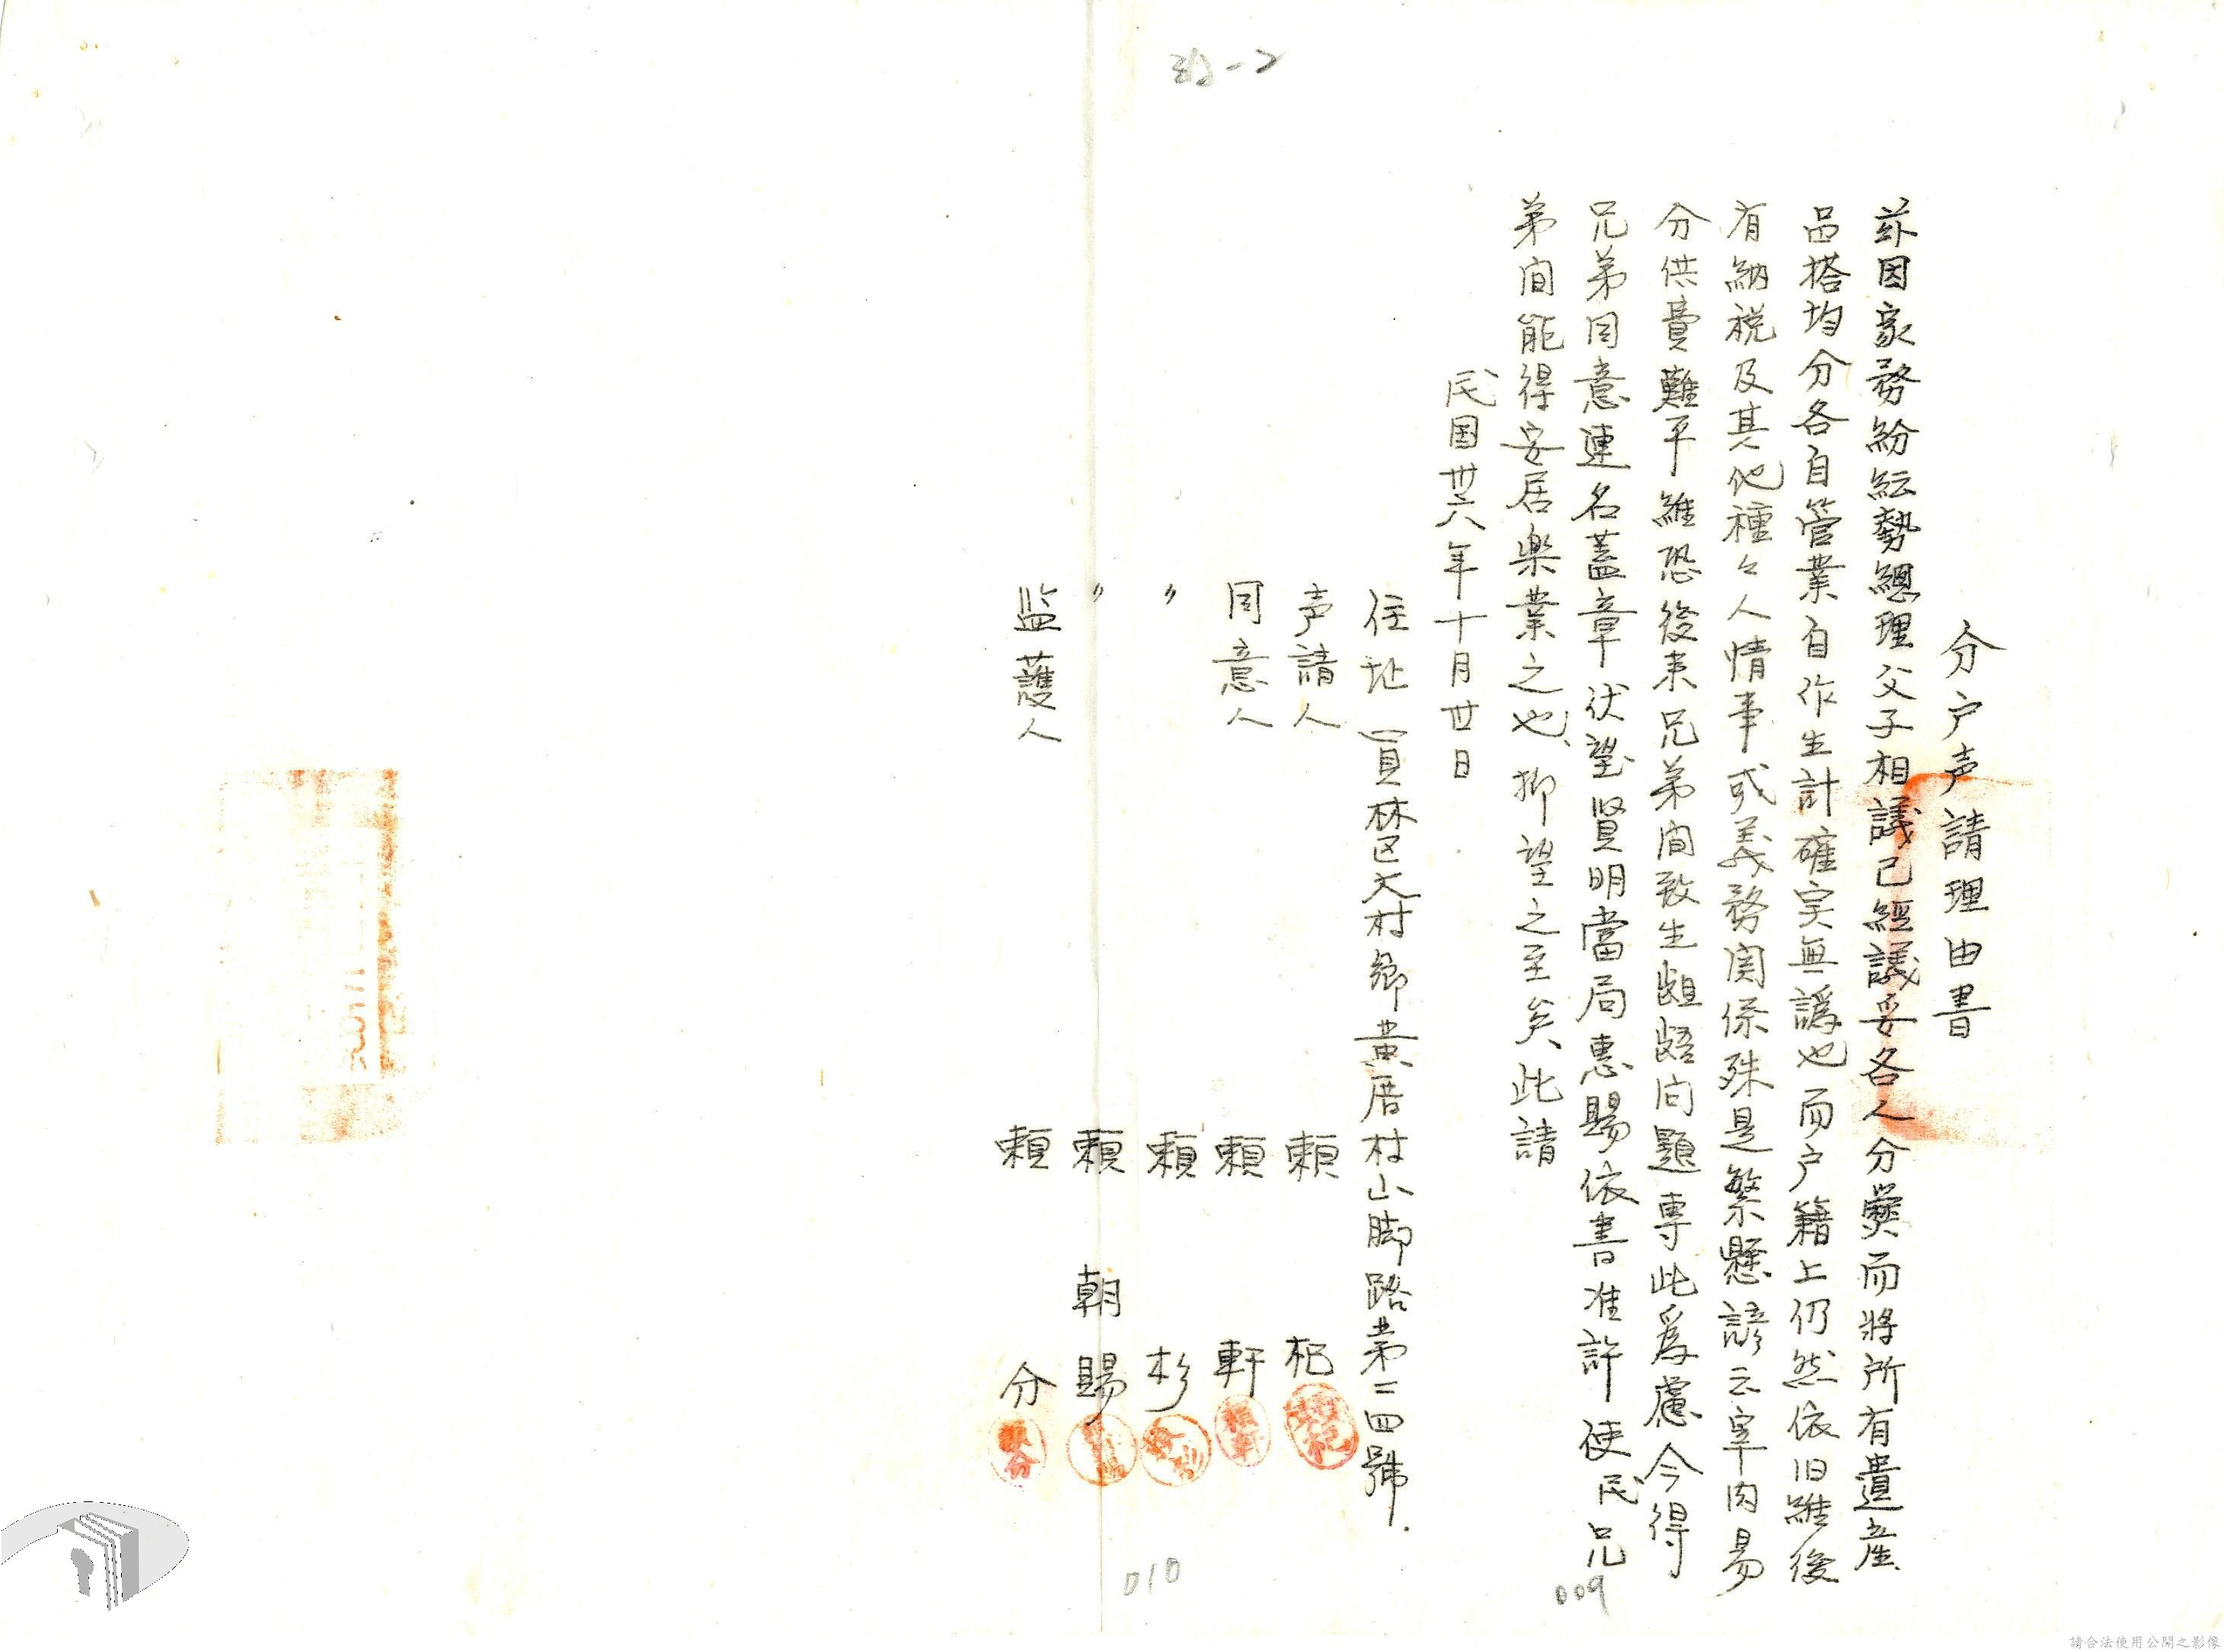 分户声請理由書
茲因家務紛紜勢總理父子相議已經議妥各人分爨而將所有遺產
品搭均分各自管業自作生計確実無譌也而户籍上仍然依旧維後
有納税及其他種々人情事或義務関係殊是繁懸諺云宰肉易
分供費難平維恐後来兄弟间致生齟齬问題專此爲慮今得
兄弟同意連名蓋章伏望賢明當局惠賜依書准許使民兄
弟间能得安居樂業之也、抑望之至矣、此請
民国卅六八年十月廿日
住址 員林区大村鄉黄厝村山脚路第二四號.
声請人 賴 杞
同意人 賴 軒
〃 賴 杉
〃 賴 朝 賜
监護人 賴 分
009
010
請合法使用公開之影像